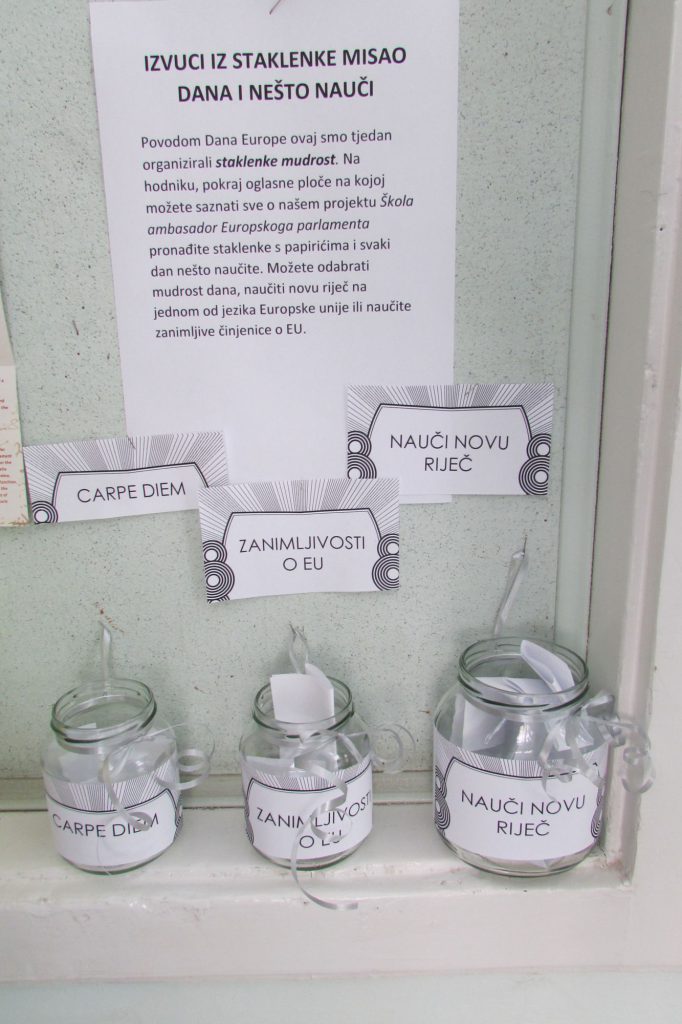 IZVUCI IZ STAKLENKE MISAO
DANA I NEŠTO NAUČI
Povodom Dana Europe ovaj smo tjedan
organizirali staklenke mudrost. Na
hodniku, pokraj oglasne ploče na kojoj
možete saznati sve o našem projektu Škola
ambasador Europskoga parlamenta
pronađite staklenke s papirićima i svaki
dan nešto naučite. Možete odabrati
mudrost dana, naučiti novu riječ na
jednom od jezika Europske unije ili naučite
zanimljive činjenice o EU.
NAUČI NOVU
RIJEČ
CARPE DIEM
ZANIMLJIVOSTI
O EU
CARPE DIEM
ZANIMLJIVOSTI
O EU
NAUČI NOVU
RIJEČ